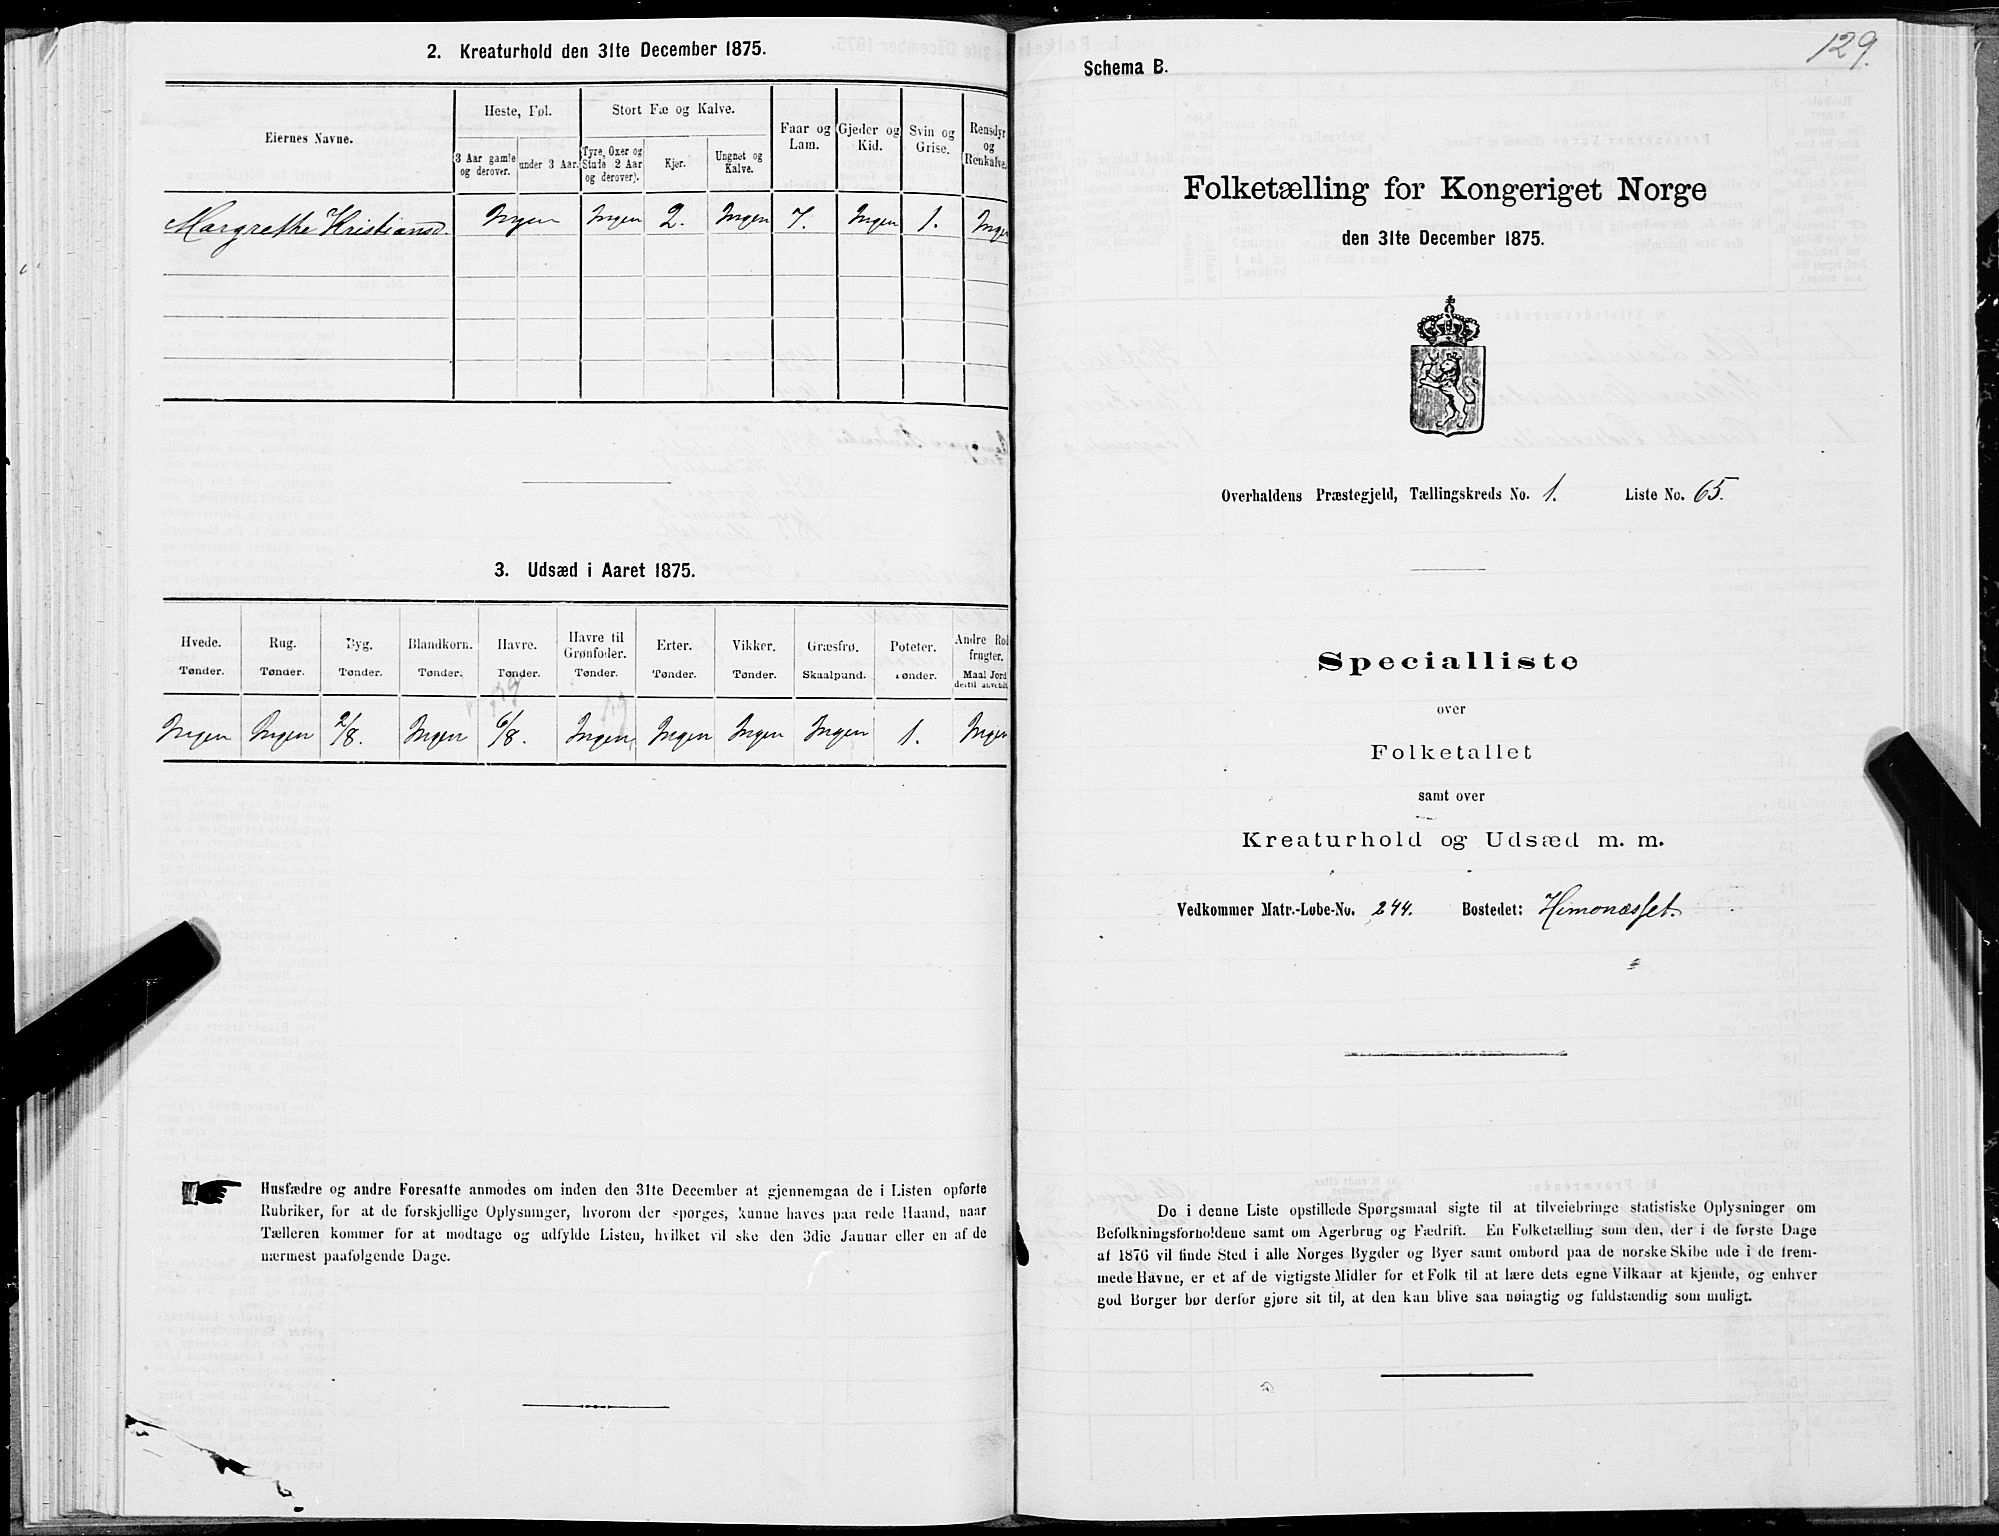 2. Kreaturhold den 31te December 1875.
Eiernes Navne.
Heste, Føl.
3 Aar gamle og derover.
under 3 Aar.
Stort Fæ og Kalve.
Tyre, Oxer og Stude 2 Aar og derover).
Kjør.
Ungnøt og Kalve.
Faar og Lam.
Gjeder og Kid.
Svin og Grise.
Rensdyr og Renkalve.
Margrethe Kristiansd. Ingen Ingen 2. Ingen 7. Ingen 1. Ingen
3. Udsæd i Aaret 1875.
Hvede. Rug. Byg. Blandkorn. Havre. Havre til Grønfoder. Erter. Vikker. Græsfrø. Poteter. Andre Rodfrugter.
Tønder. Tønder. Tønder. Tønder. Tønder. Tønder. Tønder. Tønder. Skaalpund. Tønder. Maal Jord dertil anvendt
Ingen Ingen 2/8. Ingen 6/8. Ingen Ingen Ingen Ingen 1. Ingen
Husfædre og andre Foresatte anmodes om inden den 31te December at gjennemgaa de i Listen opførte
Rubriker, for at de forskjellige Oplysninger, hvorom der spørges, kunne haves paa rede Haand, naar
Tælleren kommer for at modtage og udfylde Listen, hvilket vil ske den 3die Januar eller en af de
nærmest paafølgende Dage.
129.
Schema B.
Folketælling for Kongeriget Norge
den 31te December 1875.
Overhaldens Præstegjeld, Tællingskreds No. 1. Liste No. 65.
Specialliste
over
Folketallet
samt over
Kreaturhold og Udsæd m. m.
Vedkommer Matr.-Løbe-No. 244. Bostedet: Himonæsset.
De i denne Liste opstillede Spørgsmaal sigte til at tilveiebringe statistiske Oplysninger om
Befolkningsforholdene samt om Agerbrug og Fædrift. En Folketælling som den, der i de første Dage
af 1876 vil finde Sted i alle Norges Bygder og Byer samt ombord paa de norske Skibe ude i de frem-
mede Havne, er et af de vigtigste Midler for et Folk til at lære dets egne Vilkaar at kjende, og enhver
god Borger bør derfor gjøre sit til, at den kan blive saa nøiagtig og fuldstændig som muligt.